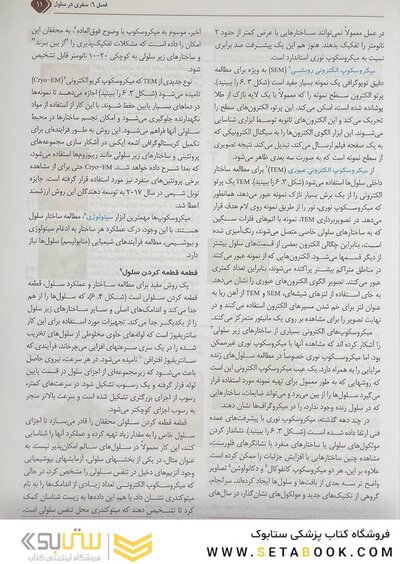 فصل ۶: سفری در سلول
۱۱
در عمل معمولاً نمی‌توانند ساختارهایی با عرض کمتر از حدود ۲
نانومتر را تفکیک بدهند. هنوز هم این یک پیشرفت صد برابری
نسبت به میکروسکوپ نوری استاندارد است.
میکروسکوپ الکترونی روبشی (SEM) به ویژه برای مطالعه
دقیق توپوگرافی یک نمونه بسیار مفید است (شکل ۶.۳ را ببینید). یک پرتو
الکترون سطح نمونه را که معمولاً با یک لایه نازک از طلا
پوشانده شده، اسکن می‌کند. این پرتو، الکترون‌های سطح را
تحریک می‌کند و این الکترون‌های ثانویه توسط ابزاری شناسایی
می‌شوند. این ابزار الگوی الکترون‌ها را به سیگنال الکترونیکی که
به یک صفحه فیلم ارسال می‌کند، تبدیل می‌کند. نتیجه تصویری
از سطح نمونه است که به صورت سه بعدی ظاهر می‌شود.
از میکروسکوپ الکترونی عبوری (TEM) برای مطالعه ساختار
داخلی سلول‌ها استفاده می‌شود (شکل ۶.۳ را ببینید). TEM یک پرتو
الکترونی را از یک برش بسیار نازک نمونه عبور می‌دهد، همانطور
که میکروسکوپ نوری، نور را از طریق نمونه روی لام هدف قرار
می‌دهد. در تصویربرداری TEM، نمونه با اتم‌های فلزات سنگین
که به ساختارهای سلولی خاصی متصل می‌شوند، رنگ‌آمیزی شده
است، بنابراین چگالی الکترون بعضی از قسمت‌های سلول بیشتر
از دیگر قسمت‌ها می‌شود. الکترون‌هایی که از نمونه عبور می‌کنند
در مناطق متراکم بیشتر پراکنده می‌شوند، بنابراین تعداد کمتری
عبور می‌کنند. تصویر الگوی الکترون‌های عبوری را نشان می‌دهد.
به جای استفاده از لنزهای شیشه‌ای، SEM و TEM از آهن ربا به
عنوان لنز برای خم شدن مسیرهای الکترون استفاده می‌کنند و در
نهایت تصویر را برای مشاهده بر روی یک مانیتور متمرکز می‌کنند.
میکروسکوپ‌های الکترونی بسیاری از ساختارهای زیر سلولی
را آشکار کرده اند که مشاهده آنها با میکروسکوپ نوری غیرممکن
بود. اما میکروسکوپ نوری خصوصاً در مطالعه سلول‌های زنده
مزایایی را به همراه دارد. یک عیب میکروسکوپ الکترونی این است
که روشهایی که به طور معمول برای تهیه نمونه مورد استفاده قرار
می‌گیرد سلول‌ها را از بین می‌برد و می‌تواند ضایعات، ساختارهایی
که در سلول زنده وجود ندارد، را در میکروگراف‌ها نشان دهند.
در چند دهه گذشته، میکروسکوپ نوری با پیشرفت‌های عمده
فنی ارتقا داده شده است (شکل ۶.۳ را ببینید). نشاندار کردن
مولکول‌های سلولی یا ساختارهای منفرد با نشانگرهای فلورسنت،
مشاهده چنین ساختارهایی با افزایش جزئیات را ممکن کرده است.
علاوه بر این، هر دو میکروسکوپ "کانفوکال" و "دکانولوشن" تصاویر
واضح تر سه بعدی از بافت‌ها و سلول‌ها ایجاد کرده‌اند. سرانجام،
گروهی از تکنیک‌های جدید و مولکول‌های نشان‌گذار، در سال‌های
اخیر، موسوم به میکروسکوپ با وضوح فوق‌العاده، به محققان این
امکان را داده است که مشکلات تفکیک‌پذیری را "از بین ببرند"
ساختارهای زیر سلولی به کوچکی ۲۰-۱۰ نانومتر قابل تشخیص
شود.
نوع جدیدی از TEM که میکروسکوپ کریو الکترونی (Cryo-EM)
نامیده می‌شود (شکل ۶.۳ را ببینید) اجازه می‌دهد تا نمونه‌ها
در دماهای بسیار پایین حفظ شوند. با این کار استفاده از مواد
نگهدارنده جلوگیری می‌شود و امکان تجسم ساختارها در محیط
سلولی آنها فراهم می‌شود. این روش به طور فزاینده‌ای برای
تکمیل کریستالوگرافی اشعه ایکس در آشکار سازی مجموعه‌های
پروتئینی و ساختارهای زیر سلولی مانند ریبوزوم‌ها استفاده می‌شود،
که بعدا شرح داده خواهد شد. Cryo-EM حتی برای از مشاهده
برخی پروتئین‌های منفرد نیز مورد استفاده قرار گرفته است. جایزه
نوبل شیمی در سال ۲۰۱۷ به توسعه دهندگان این روش ارزشمند
اعطا شد.
میکروسکوپ‌ها مهمترین ابزار سیتولوژی، مطالعه ساختار سلول
هستند. با این وجود، درک عملکرد هر ساختار به ادغام سیتولوژی
و بیوشیمی، مطالعه فرآیندهای شیمیایی (متابولیسم) سلول‌ها نیاز
دارد.
قطعه قطعه کردن سلول
یک روش مفید برای مطالعه ساختار و عملکرد سلول، قطعه
قطعه کردن سلولی است (شکل ۶.۴)، که سلول‌ها را از هم
جدا می‌کند و اندامک‌های اصلی و سایر ساختارهای زیر سلول
را از یکدیگر جدا می‌کند. تجهیزات مورد استفاده برای این کار
سانتریفیوژ است که لوله‌های حاوی مخلوطی از سلول‌های مختل
شده را در یک سری سرعت‌های افزایی می‌چرخاند، فرآیندی که
"سانتریفیوژ افتراقی" نامیده می‌شود. در هر سرعت، نیروی حاصل
باعث می‌شود که زیرمجموعه‌ای از اجزای سلول در قسمت پایین
لوله قرار گرفته و یک رسوب تشکیل شود. در سرعت‌های کمتر،
رسوب از اجزای بزرگتری تشکیل شده است و سرعت بالاتر منجر
به رسوب اجزای کوچکتر می‌شود.
قطعه کردن سلولی محققان را قادر می‌سازد تا اجزای
سلول خاص را به مقدار زیاد تهیه کرده و عملکرد آنها را شناسایی
کنند، این کار معمولاً در سلول‌های سالم امکان‌پذیر نیست. به
عنوان مثال، در یکی از بخشهای سلولی، آزمایشهای بیوشیمیایی
وجود آنزیم‌های دخیل در تنفس سلولی را مشخص کرد، در حالی
که میکروسکوپ الکترونی تعداد زیادی از اندامک‌ها را به نام
میتوکندری نشان داد. با هم، این داده‌ها به زیست شناسان کمک
کرد تا تشخیص دهند که میتوکندری محل تنفس سلولی است.
ستابوک
فروشگاه اینترنتی کتاب
فروشگاه کتاب پزشکی ستابوک
WWW.SETABOOK.COM